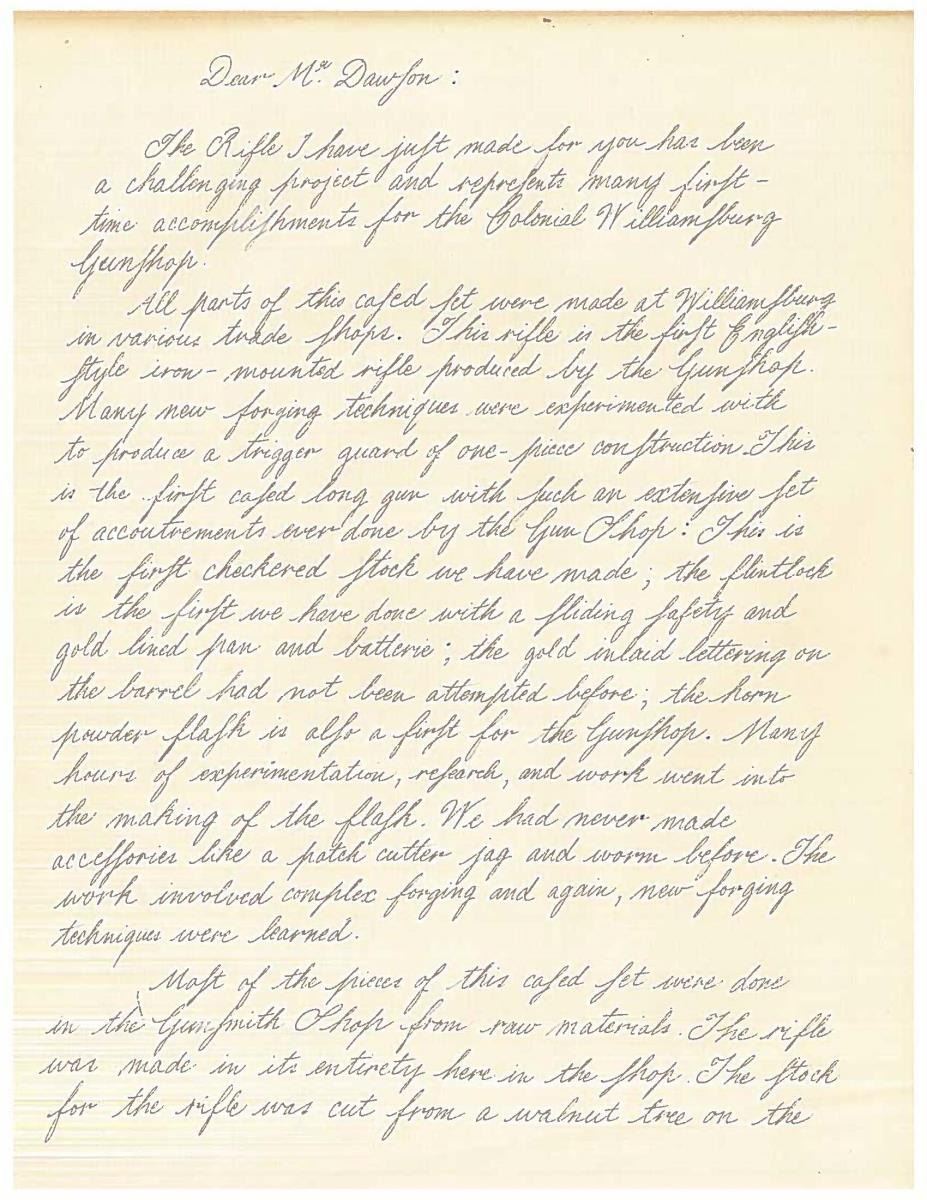 Dear Mr. Dawſon :
The Rifle I have juſt made for you has been
a challenging project and repreſents many firſt -
time accompliſhments for the Colonial Williamſburg
Gunſhop.
All parts of this caſed ſet were made at Williamſburg
in various trade ſhops. This rifle is the firſt Engliſh -
ſtyle iron - mounted rifle produced by the Gunſhop.
Many new forging techniques were experimented with
to produce a trigger guard of one - piece conſtruction. This
is the firſt caſed long gun with ſuch an extenſive ſet
of accoutrements ever done by the Gun Shop : This is
the firſt checkered ſtock we have made ; the flintlock
is the firſt we have done with a ſliding ſafety and
gold lined pan and batterie ; the gold inlaid lettering on
the barrel had not been attempted before ; the horn
powder flaſk is alſo a firſt for the Gunſhop. Many
hours of experimentation, reſearch, and work went into
the making of the flaſk. We had never made
acceſſories like a patch cutter jag and worm before. The
work involved complex forging and again, new forging
techniques were learned.
Moſt of the pieces of this caſed ſet were done
in the Gunſmith Shop from raw materials. The rifle
was made in its entirety here in the ſhop. The ſtock
for the rifle was cut from a walnut tree on the